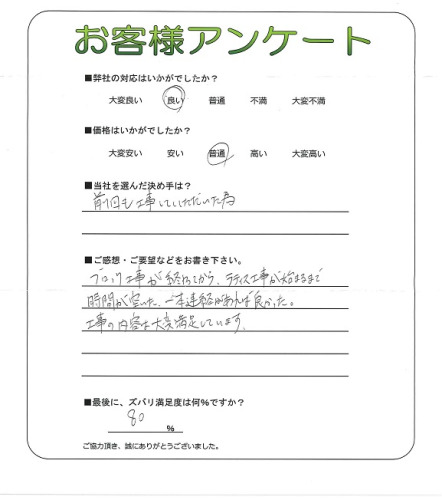 お客様アンケート
■弊社の対応はいかがでしたか？
大変良い 良い 普通 不満 大変不満
■価格はいかがでしたか？
大変安い 安い 普通 高い 大変高い
■当社を選んだ決め手は？
前回も工事していただいた為
■ご感想・ご要望などをお書き下さい。
ブロック工事が終わってから、ラティス工事が始まるまで
時間が空いた、一本連絡があれば良かった。
工事の内容は大変満足しています。
■最後に、ズバリ満足度は何%ですか？
80 %
ご協力頂き、誠にありがとうございました。